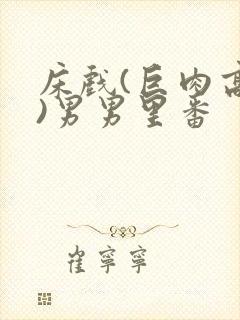 床戏(巨肉高
)男男里番
崔寧寧